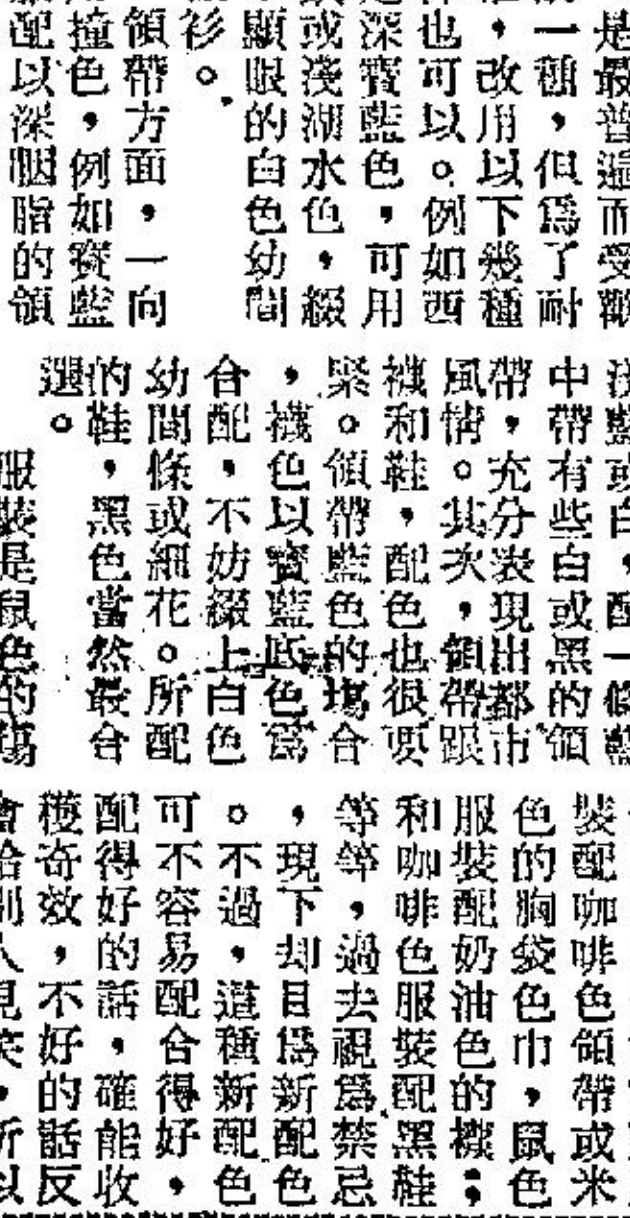 是最普遍而受歡
一種，但爲了耐
，改用以下幾種
也可以。例如西
深寶藍色，可用
或淺湖水色，綴
顯眼的白色幼間
衫。
領帶方面，一向
撞色，例如寶藍
配以深胭脂的領
淺藍或白，配一條藍
中帶有些白或黑的領
帶，充分表現出都市
風情。其次，領帶跟
襪和鞋，配色也很要
緊。領帶藍色的場合
，襪色以寶藍底色爲
合配，不妨綴上白色
幼間條或細花。所配
的鞋，黑色當然最合
選。
服裝是鼠色的場
裝配咖啡色領帶或米
色的胸袋色巾，鼠色
服裝配奶油色的襪；
和咖啡色服裝配黑鞋
等等，過去視爲禁忌
，現下却目爲新配色
。不過，這種新配色
可不容易配合得好，
配得好的話，確能收
穫奇效，不好的話反
會給別人見笑，所以